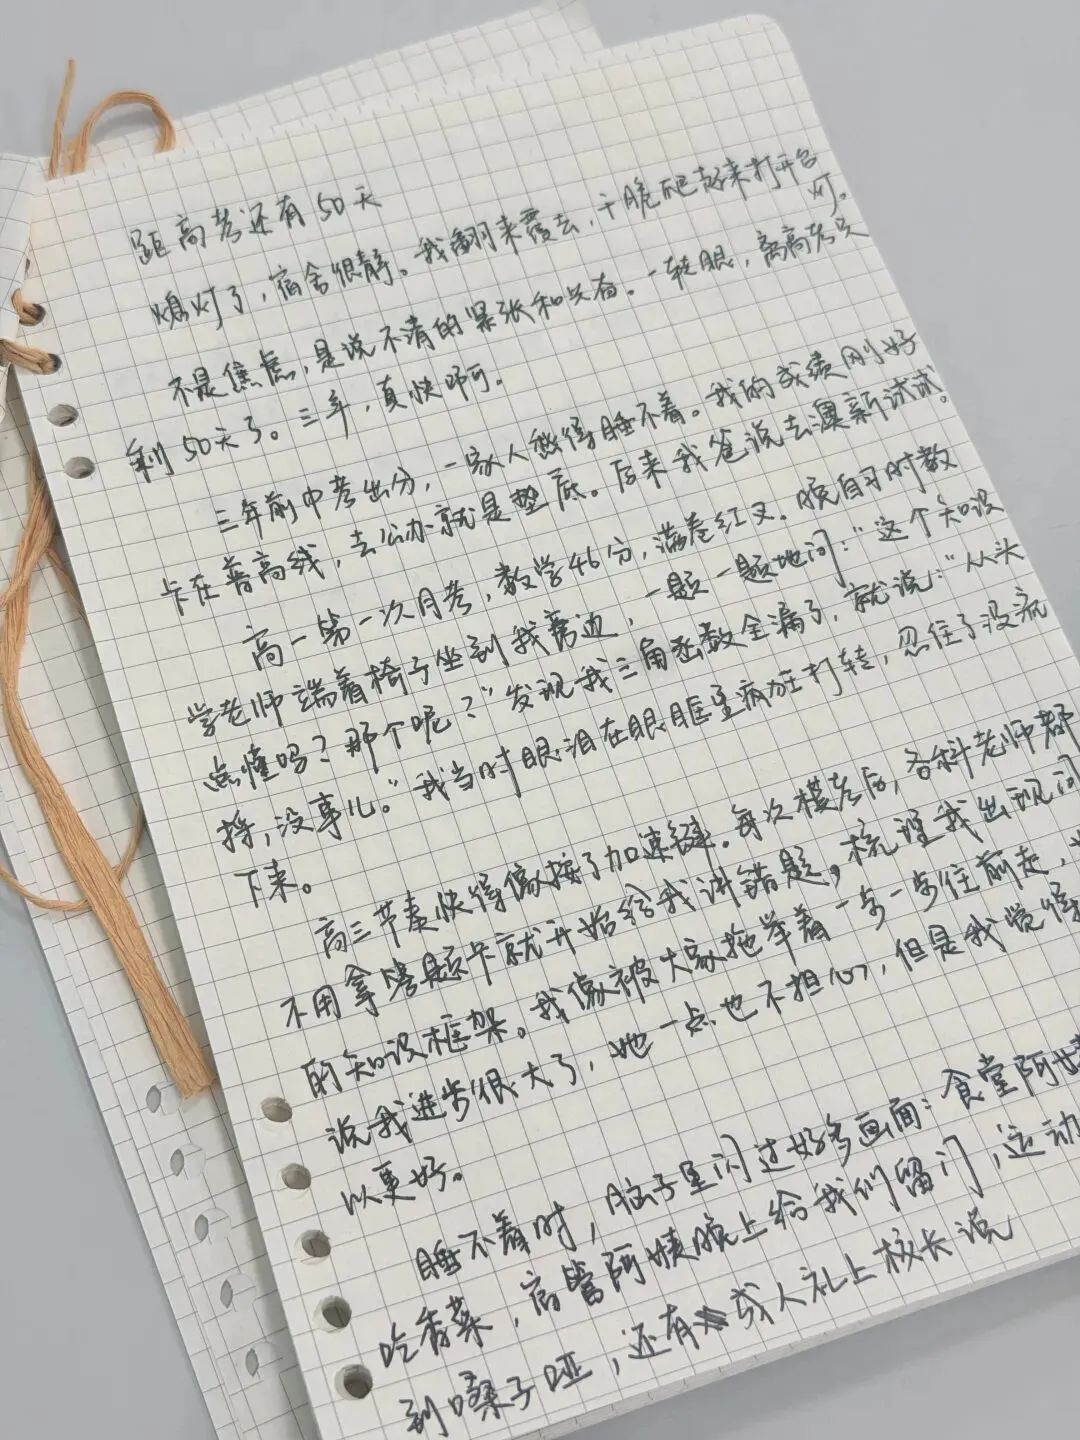 距高考还有50天
熄灯了，宿舍很静。我翻来覆去，干脆爬起来打开台灯。
不是焦虑，是说不清的紧张和兴奋。一转眼，离高考只
剩50天了。三年，真快啊。
三年前中考出分，一家人愁得睡不着。我的成绩刚好
卡在普高线，去公办就是垫底。后来我爸说去澳新试试。
高一第一次月考，数学46分，满卷红叉。晚自习时数
学老师端着椅子坐到我旁边，一题一题地问：“这个知识
点懂吗？那个呢？”发现我三角函数全漏了，就说：“从头
捋，没事儿。”我当时眼泪在眼眶里疯狂打转，忍住了没流
下来。
高三节奏快得像按了加速键。每次模考后，各科老师都
不用拿答题卡就开始给我讲错题，梳理我出现问
的知识框架。我像被大家拖举着一步一步往前走，
说我进步很大了，她一点也不担心，但是我觉得
以更好。
睡不着时，脑子里闪过好多画面：食堂阿姨
吃香菜，宿管阿姨晚上给我们留门，运动
到嗓子哑，还有成人礼上校长说